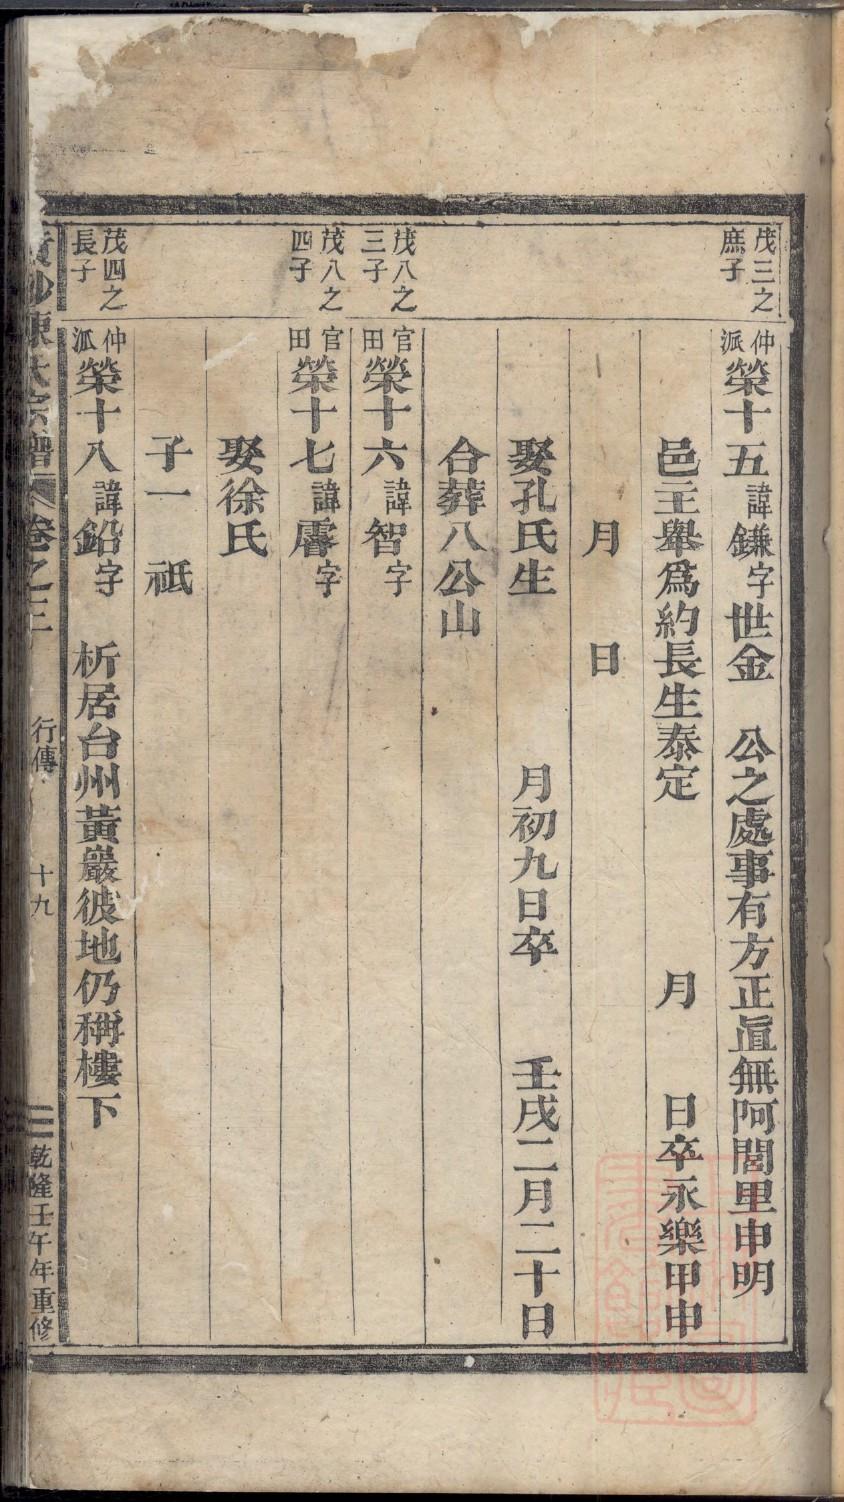 茂三之
庶子
仲
派
榮十五諱鎌字世金　公之處事有方正直無阿閭里申明
邑主舉為約長生泰定　月　日卒永樂甲申
月　日
娶孔氏生　月初九日卒　壬戌二月二十日
合葬八公山
茂八之
三子
官
田
榮十六諱智字
茂八之
四子
官
田
榮十七諱字
娶徐氏
子一　祇
茂四之
長子
仲
派
榮十八諱鉛字　析居台州黃巖彼地仍稱樓下
陳氏宗譜　卷之三　行傳　十九　乾隆壬午年重修